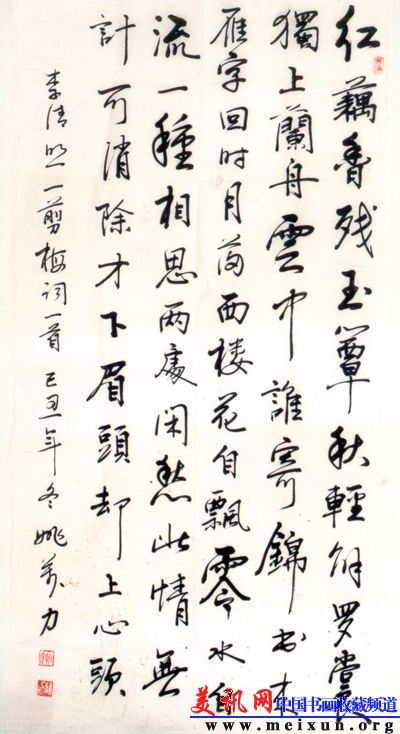 红藕香残玉簟秋輕解罗裳
獨上蘭舟雲中誰寄錦书来
雁字回时月满西楼花自飄零水自
流一種相思两處闲愁此情無
計可消除才下眉頭却上心頭
李清照一剪梅词一首 己丑年冬 姚萬力
美讯网 中国书画收藏频道
www.meixun.org